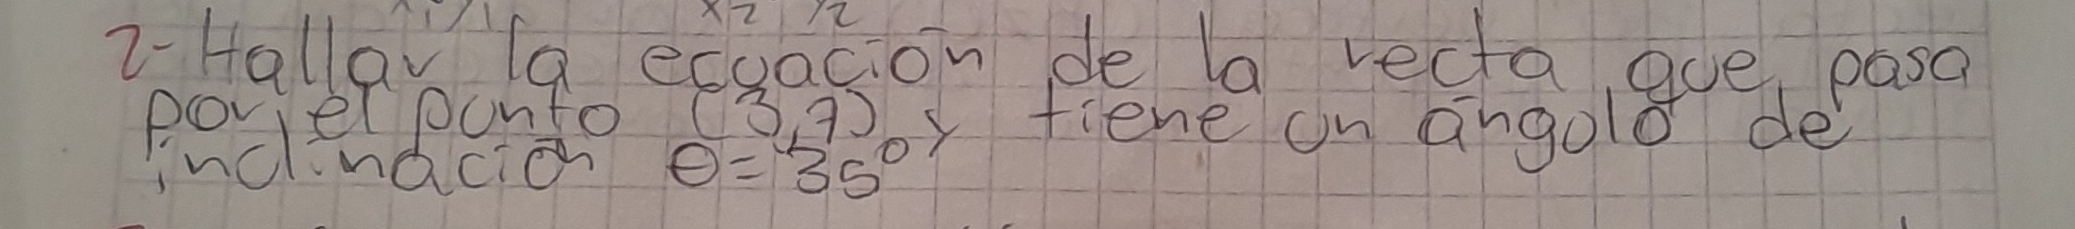 x1 y1 x2 y2
2- Hallar la ecuación de la recta que pasa
por el punto (3,7) y tiene un ángulo de
inclinación θ = 35°